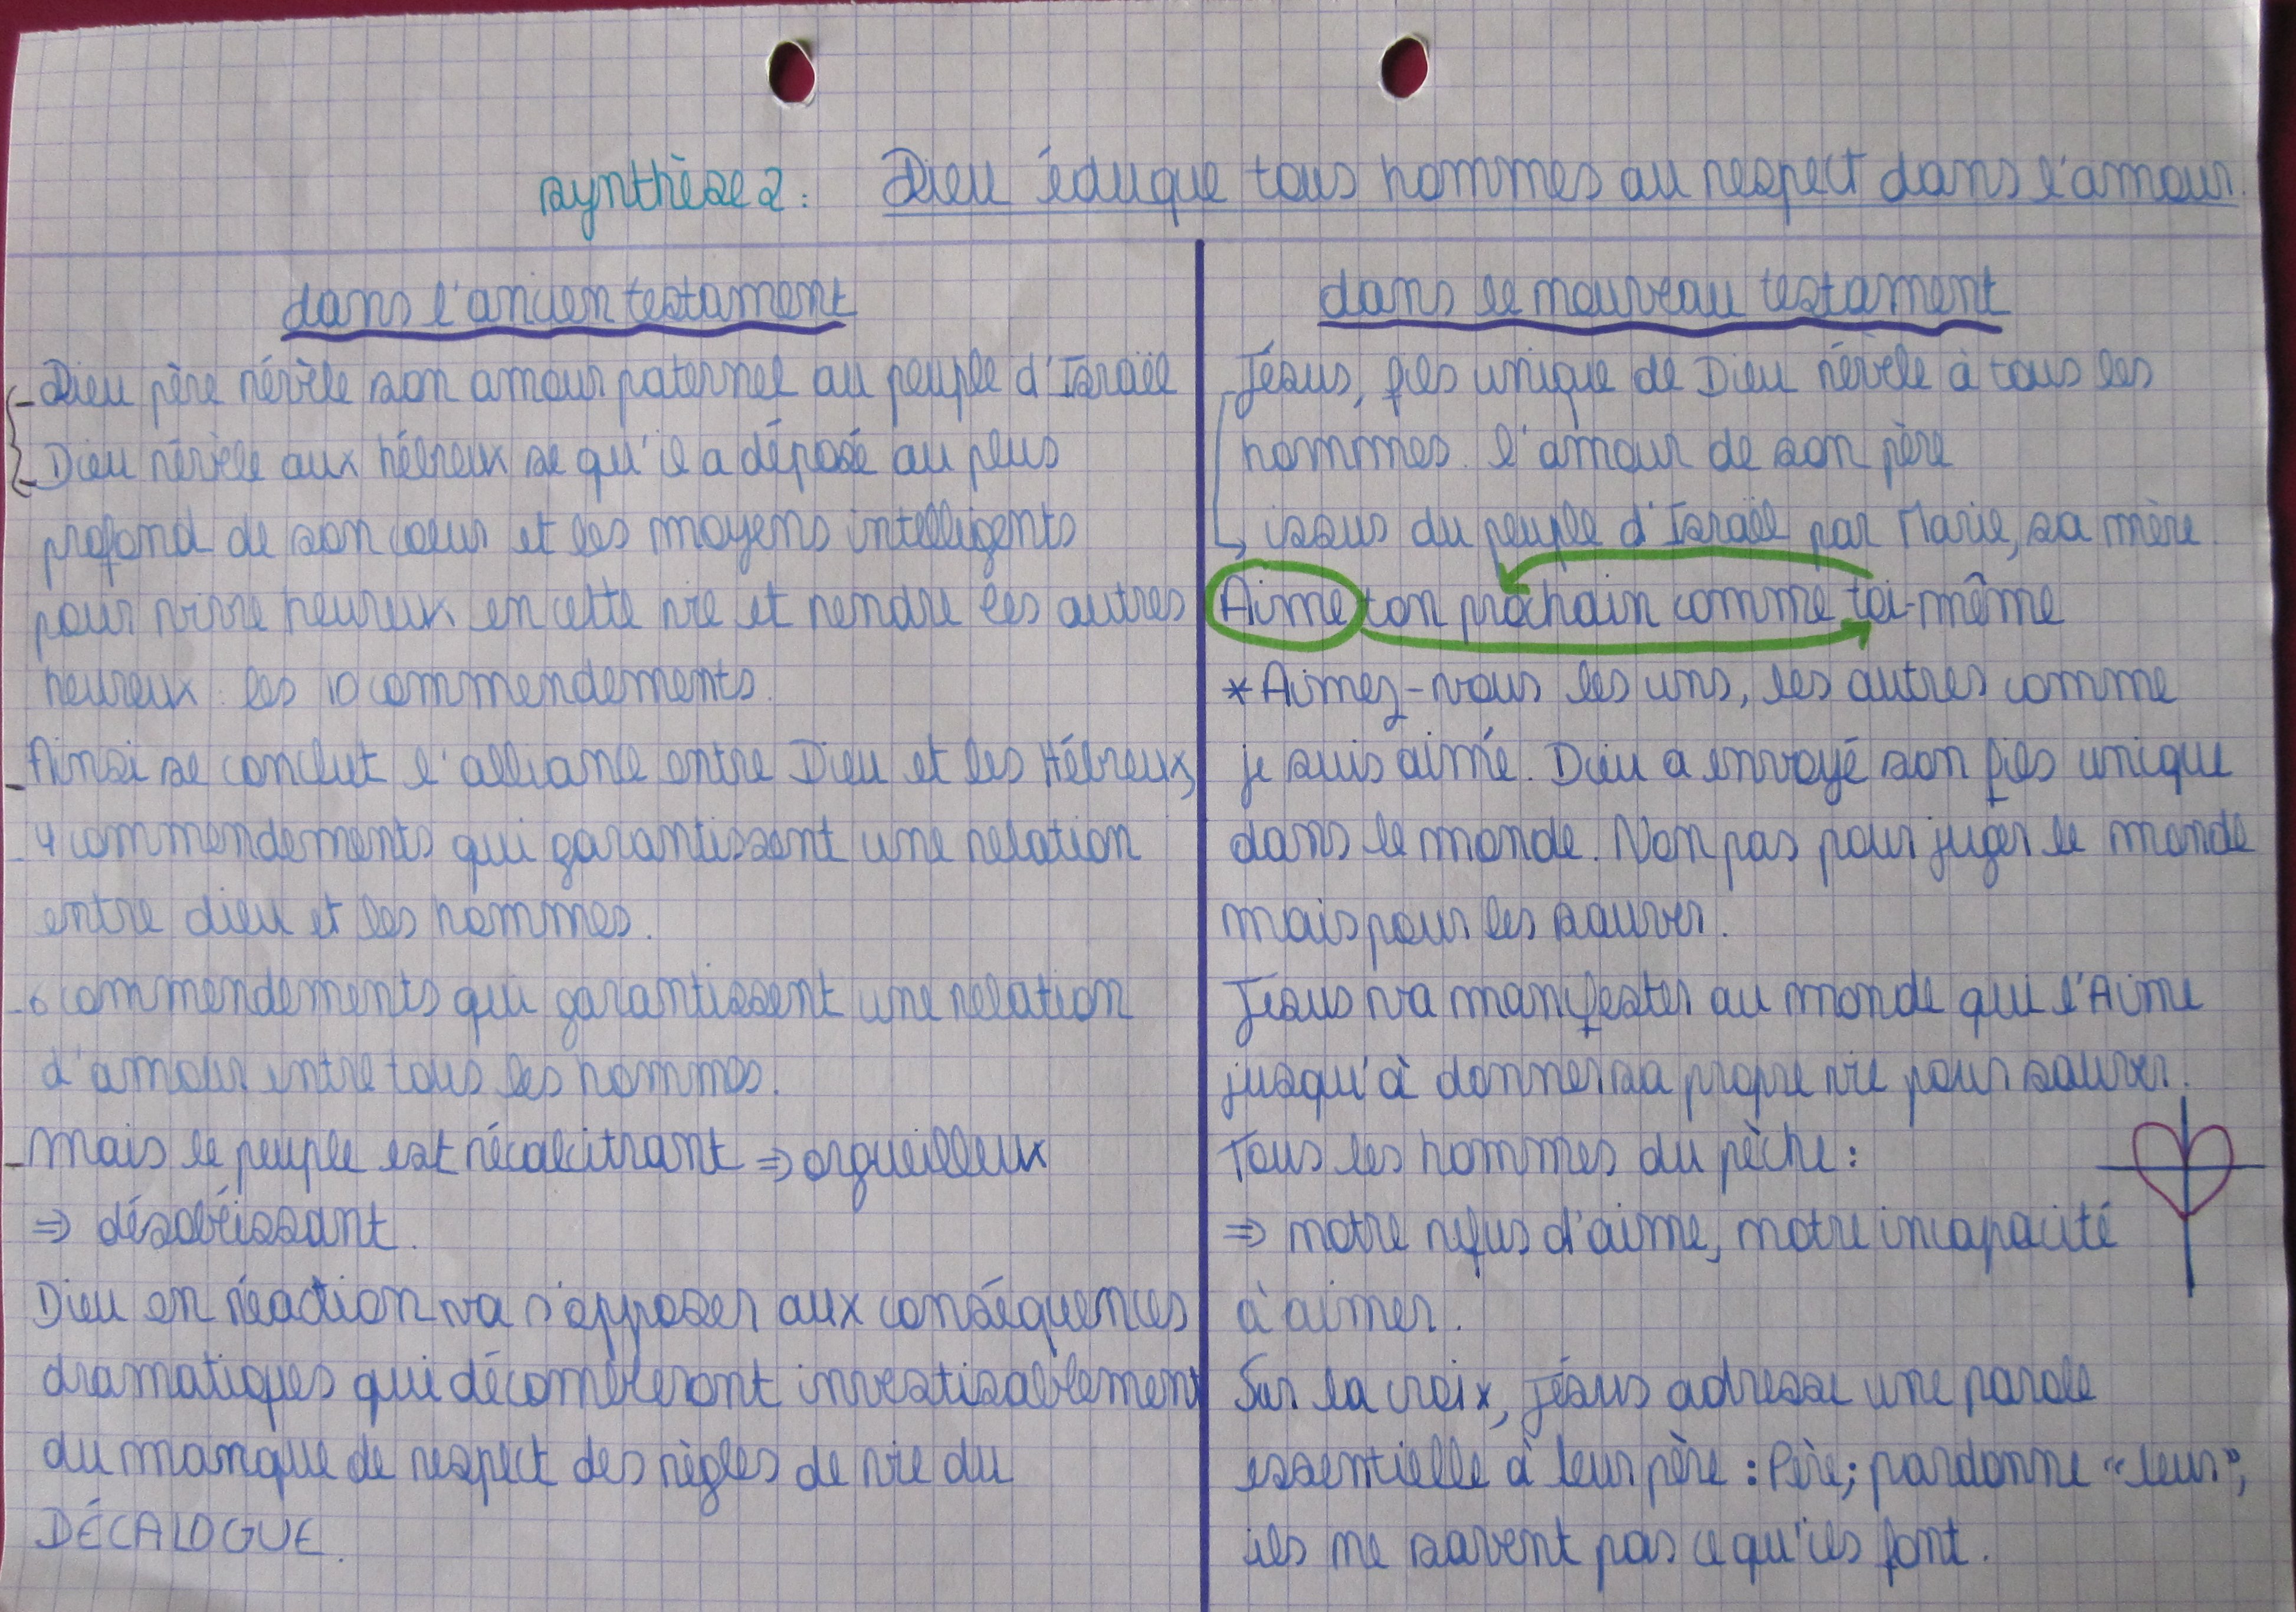 synthèse 2: Dieu éduque tous hommes au respect dans l'amour.
dans l'ancien testament
- Dieu père révèle son amour paternel au peuple d'Israël
- Dieu révèle aux hébreux se qu'il a déposé au plus
profond de son coeur et les moyens intelligents
pour vivre heureux en cette vie et rendre les autres
heureux : les 10 commendements.
- Ainsi se conclut l'alliance entre Dieu et les Hébreux,
- 4 commendements qui garantissent une relation
entre dieu et les hommes.
- 6 commendements qui garantissent une relation
d'amour entre tous les hommes.
- Mais le peuple est récalcitrant ⇒ orgueilleux
⇒ désobéissant.
Dieu en réaction va s'opposer aux conséquences
dramatiques qui décomberont investisablement
du manque de respect des règles de vie du
DÉCALOGUE.
dans le nouveau testament
Jésus, fils unique de Dieu révèle à tous les
hommes. l'amour de son père
→ issus du peuple d'Israël par Marie, sa mère.
Aime ton prochain comme toi-même
* Aimez-vous les uns, les autres comme
je suis aimé. Dieu a envoyé son fils unique
dans le monde. Non pas pour juger le monde
mais pour les sauver.
Jésus va manifester au monde qui l'Aime
jusqu'à donner sa propre vie pour sauver.
Tous les hommes du pèche :
⇒ notre refus d'aime, notre incapacité
à aimer.
Sur la croix, Jésus adresse une parole
essentielle à leur père : Père; pardonne "leur",
ils ne savent pas ce qu'ils font.